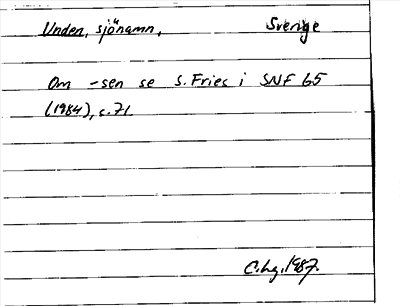 Unden, sjönamn, Sverige
Om -sen se S. Fries i SNF 65
(1984), s. 71.
C.hg. 1987.